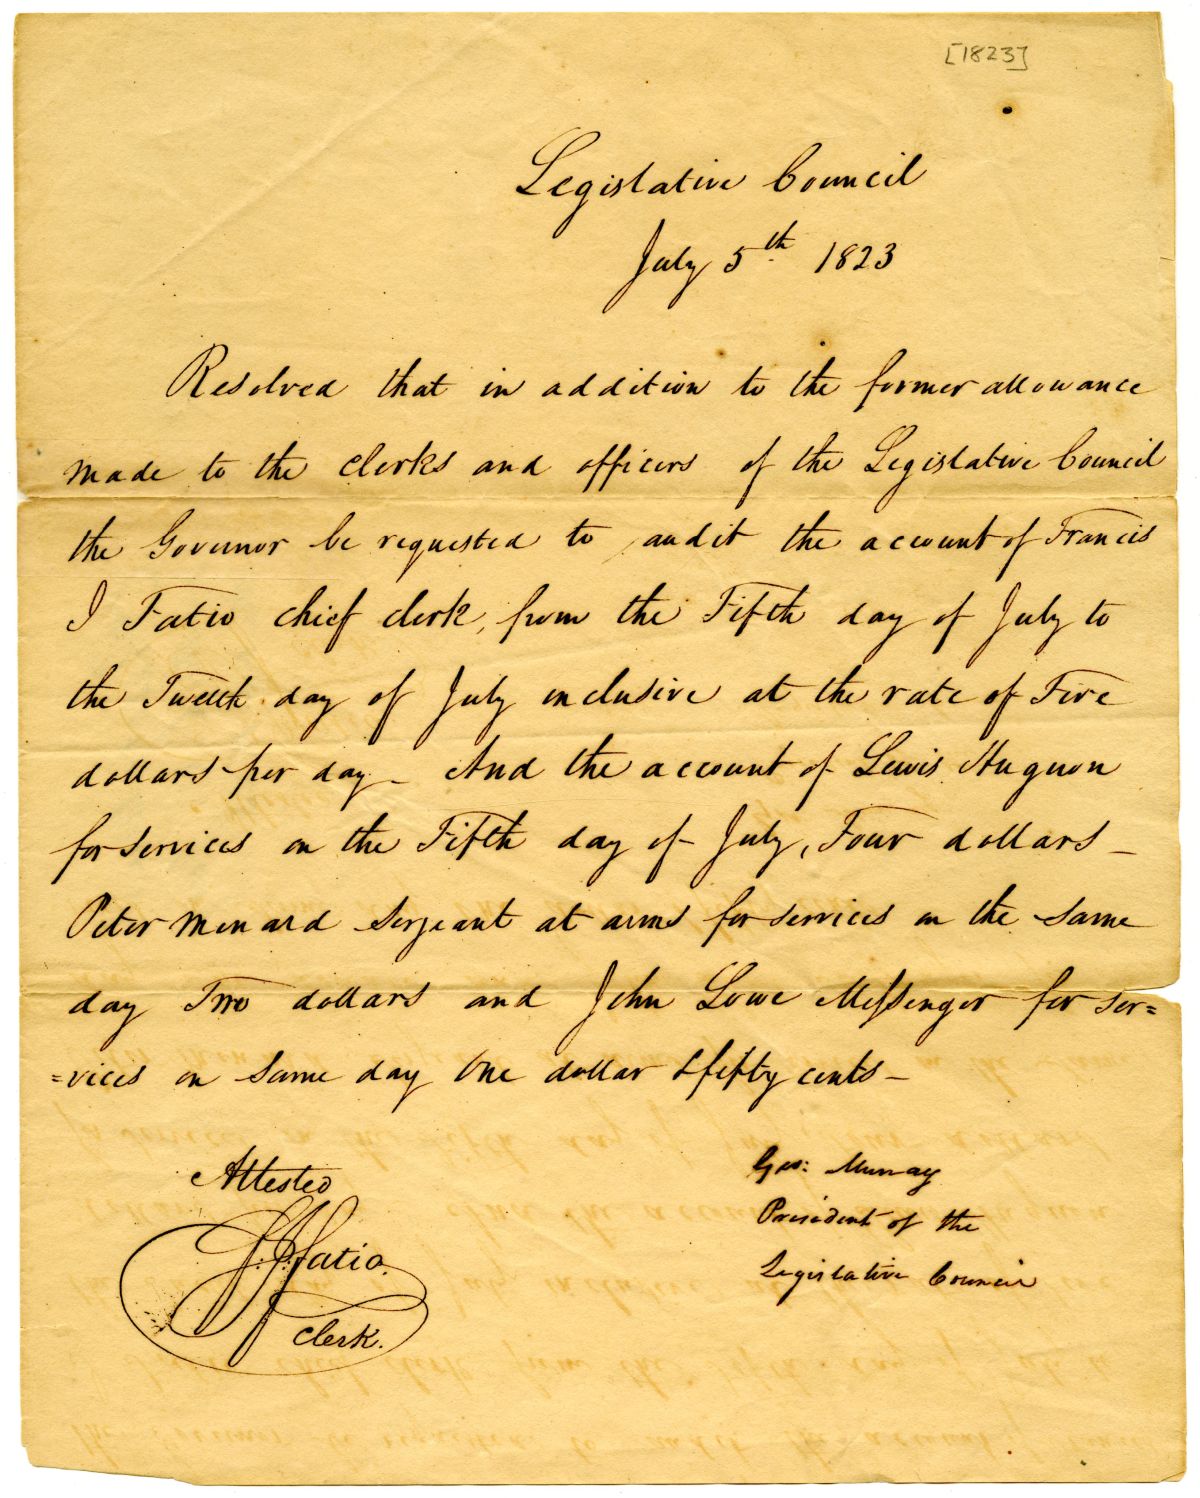 [1823]
Legislative Council
July 5th 1823
Resolved that in addition to the former allowance
made to the clerks and officers of the Legislative Council
the Governor be requested to audit the account of Francis
J Fatio chief clerk, from the Fifth day of July to
the Twelth day of July inclusive at the rate of Five
dollars per day – And the account of Lewis Huguon
for services on the Fifth day of July, Four dollars –
Peter Menard Serjeant at arms for services on the same
day Two dollars and John Lowe Messenger for ser=
=vices on same day One dollar & fifty cents –
Attested
F. J. Fatio.
Clerk.
Geo: Murray
President of the
Legislative Council